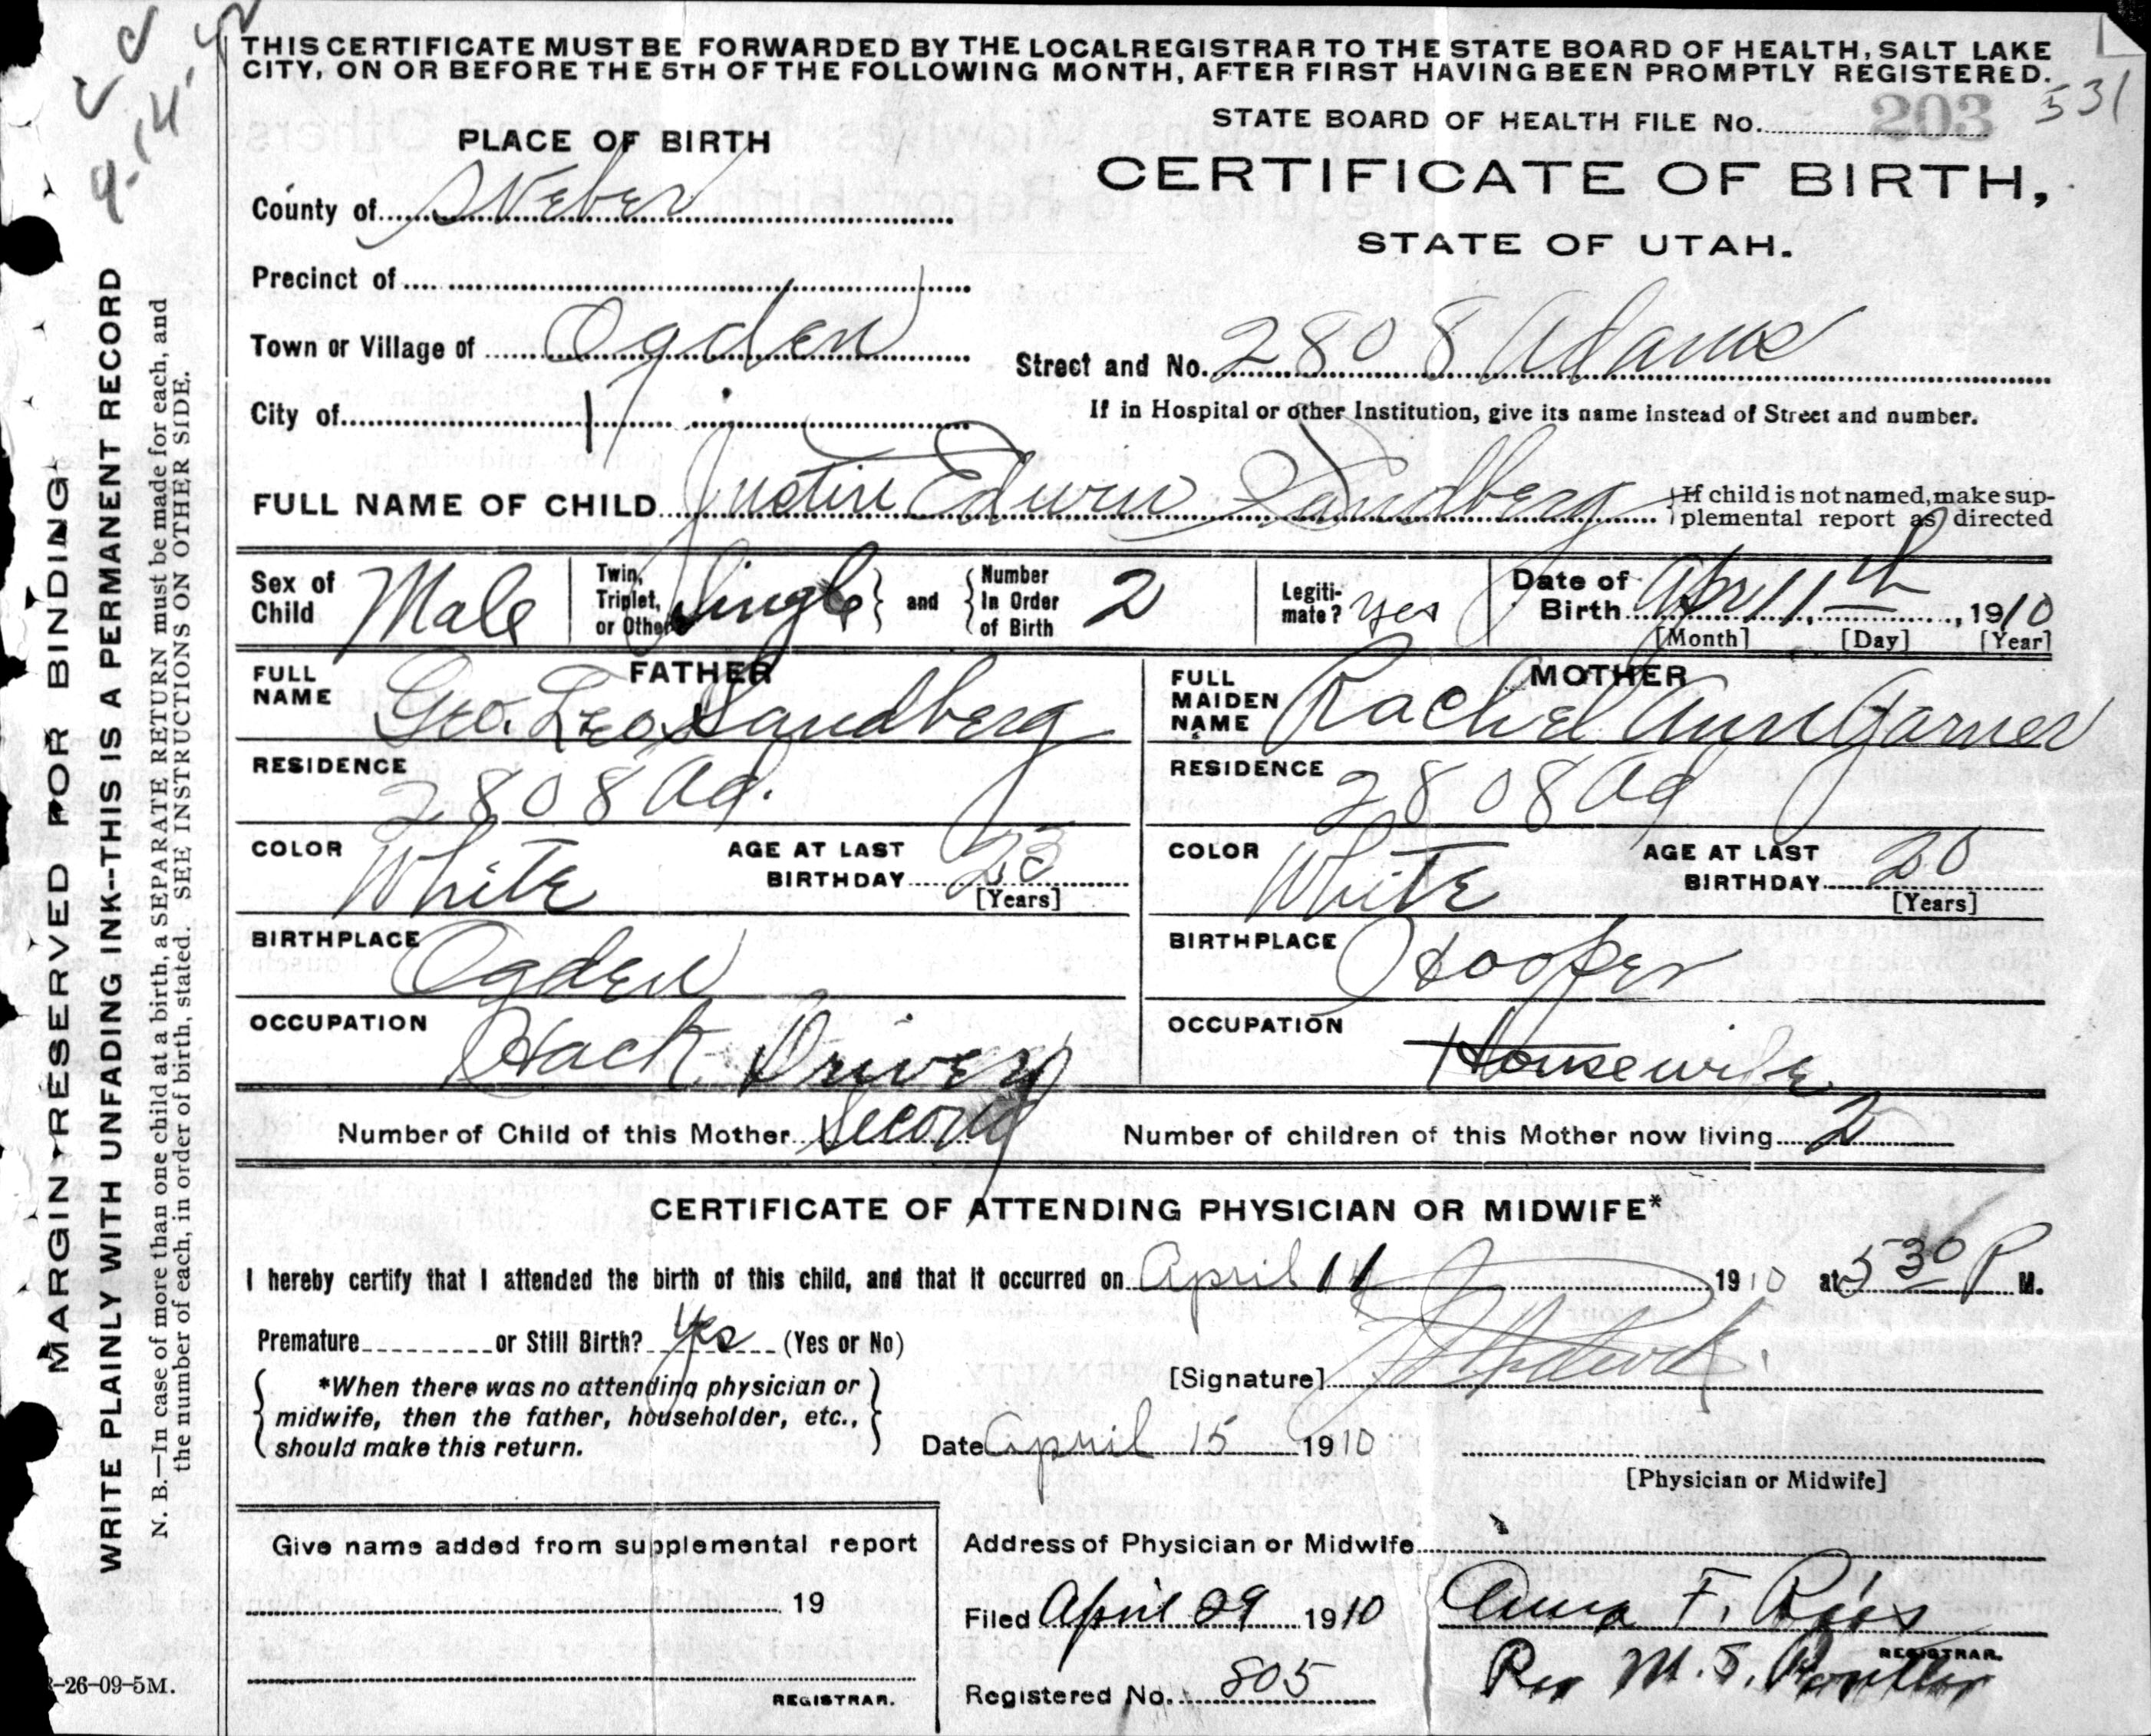 THIS CERTIFICATE MUST BE FORWARDED BY THE LOCAL REGISTRAR TO THE STATE BOARD OF HEALTH, SALT LAKE
CITY, ON OR BEFORE THE 5TH OF THE FOLLOWING MONTH, AFTER FIRST HAVING BEEN PROMPTLY REGISTERED.
531
STATE BOARD OF HEALTH FILE No. 203
PLACE OF BIRTH
CERTIFICATE OF BIRTH,
STATE OF UTAH.
County of Weber
Precinct of
Town or Village of Ogden
Street and No. 2808 Adams
City of
If in Hospital or other Institution, give its name instead of Street and number.
FULL NAME OF CHILD Justin Edwin Sandberg
If child is not named, make sup-
plemental report as directed
Sex of Child Male
Twin, Triplet, or Other Single and Number In Order of Birth 2
Legiti-mate? yes
Date of Birth Apr 11th, 1910
[Month] [Day] [Year]
FATHER
FULL NAME Geo. Leo Sandberg
RESIDENCE 2808 Ad.
COLOR White AGE AT LAST BIRTHDAY 23
[Years]
BIRTHPLACE Ogden
OCCUPATION Hack Driver
MOTHER
FULL MAIDEN NAME Rachel Ann Garner
RESIDENCE 2808 Ad
COLOR White AGE AT LAST BIRTHDAY 20
[Years]
BIRTHPLACE Hooper
OCCUPATION Housewife
Number of Child of this Mother Second
Number of children of this Mother now living 2
CERTIFICATE OF ATTENDING PHYSICIAN OR MIDWIFE*
I hereby certify that I attended the birth of this child, and that it occurred on April 11 1910 at 530 P M.
Premature or Still Birth? Yes (Yes or No)
*When there was no attending physician or
midwife, then the father, householder, etc.,
should make this return.
[Signature]
Date April 15 1910
[Physician or Midwife]
Give name added from supplemental report
19
REGISTRAR.
Address of Physician or Midwife
Filed April 29 1910
Anna F.
REGISTRAR.
Registered No. 805
Per M. S.
MARGIN RESERVED FOR BINDING
WRITE PLAINLY WITH UNFADING INK--THIS IS A PERMANENT RECORD
N. B.—In case of more than one child at a birth, a SEPARATE RETURN must be made for each, and
the number of each, in order of birth, stated. SEE INSTRUCTIONS ON OTHER SIDE.
-26-09-5M.